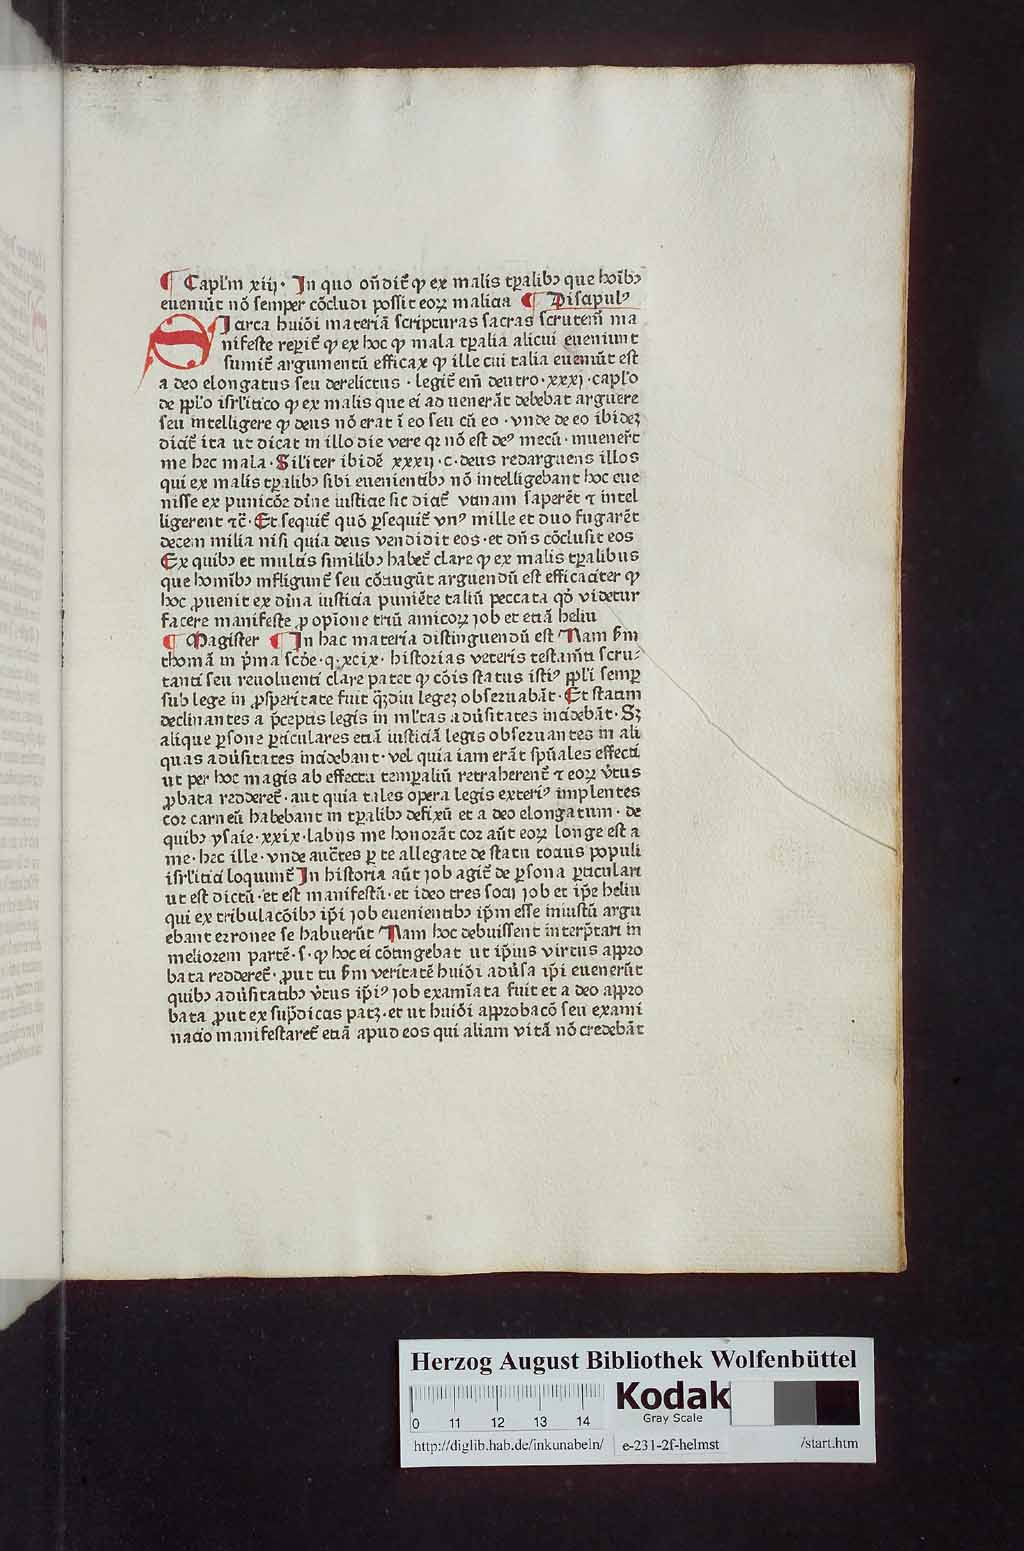 ¶ Capl'm xiij. In quo oñdit᷒ ꝙ ex malis tꝑalibꝫ que hoĩbꝫ
eueniũt nõ semper cõcludi possit eoꝝ malicia ¶ Discipulꝰ
SI circa huiõi materiã scripturas sacras scrutem̃ ma
nifeste reꝑit᷒ ꝙ ex hoc ꝙ mala tꝑalia alicui eueniunt
sumit᷒ argumentũ efficax ꝙ ille cui talia eueniũt est
a deo elongatus seu derelictus . legit᷒ eĩ deutro . xxxj . capl'o
de ꝓpl'o isrl'itico ꝙ ex malis que ei ad uenerãt debebat arguere
seu intelligere ꝙ deus nõ erat ĩ eo seu cũ eo . vnde de eo ibideꝫ
dicit᷒ ita ut dicat in illo die vere qꝛ nõ est deꝰ mecũ . inuener̃t
me hec mala . Sil'iter ibidẽ xxxij . c . deus redarguens illos
qui ex malis tꝑalibꝫ sibi euenientibꝫ nõ intelligebant hoc eue
nisse ex punicõꝫ diñe iusticie sic dicit᷒ vtinam saperẽt ⁊ intel
ligerent ⁊c̃ . Et sequit᷒ quõ ꝑsequit᷒ vnꝰ mille et duo fugarẽt
decem milia nisi quia deus vendidit eos . et dñs cõclusit eos
Ex quibꝫ et multis similibꝫ habet᷒ clare ꝙ ex malis tꝑalibus
que hominĩbꝫ infligunt᷒ seu cõtingũt arguendũ est efficaciter ꝙ
hoc ꝓuenit ex diĩna iusticia puniẽte taliũ peccata qõ videtur
facere manifeste ꝓ opione triũ amicoꝝ job et etiã heliu
¶ Magister ¶ In hac materia distinguendũ est Nam sm̃
thomã in p̃ma scõe . q . xcix . historias veteris testam̃ti scru⸗
tanti seu reuoluenti clare patet ꝙ cõis status istiꝰ ꝓpl'i semꝑ
sub lege in ꝓsperitate fuit qꝫdiu legeꝫ obseruabãt . Et statim
declinantes a p̃ceptis legis in ml'tas adũsitates incidebãt . Sꝫ
alique ꝑsone ꝑticulares etiã iusticiã legis obseruantes in ali
quas adũsitates incidebant . vel quia iam erãt spũales effecti
ut per hoc magis ab effectu temꝑaliũ retraherent᷒ ⁊ eoꝝ v̓tus
ꝓbata redderet᷒ . aut quia tales opera legis exteriꝰ implentes
cor carneũ habebant in tꝑalibꝫ defixũ et a deo elongatum . de
quibꝫ ysaie . xxix . labijs me honorãt cor aũt eoꝝ longe est a
me . hec ille . vnde auc̃tes ꝑ te allegate de statu tocius populi
isrl'itici loquunt᷒ In historia aũt job agit᷒ de ꝑsona ꝑticulari
ut est dictũ . et est manifestũ . et ideo tres socij job et ip̃e heliu
qui ex tribulacõibꝫ ip̃i job euenientibꝫ ip̃m esse iniustũ argu
ebant erronee se habuerũt Nam hoc debuissent interp̃tari in
meliorem partẽ . s . ꝙ hoc ei cõtingebat ut ip̃ius virtus appro
bata redderet᷒ . ꝓut tu sm̃ veritatẽ huiõi adũsa ip̃i euenerũt
quibꝫ adũsitatibꝫ v̓tus ip̃iꝰ job examĩata fuit et a deo appro
bata ꝓut ex sup̃dictis patꝫ . et ut huiõi approbacõ seu exami
nacio manifestaret᷒ etiã apud eos qui aliam vitã nõ credebãt
Herzog August Bibliothek Wolfenbüttel
0 11 12 13 14
Kodak
Gray Scale
http://diglib.hab.de/inkunabeln/ e-231-2f-helmst /start.htm